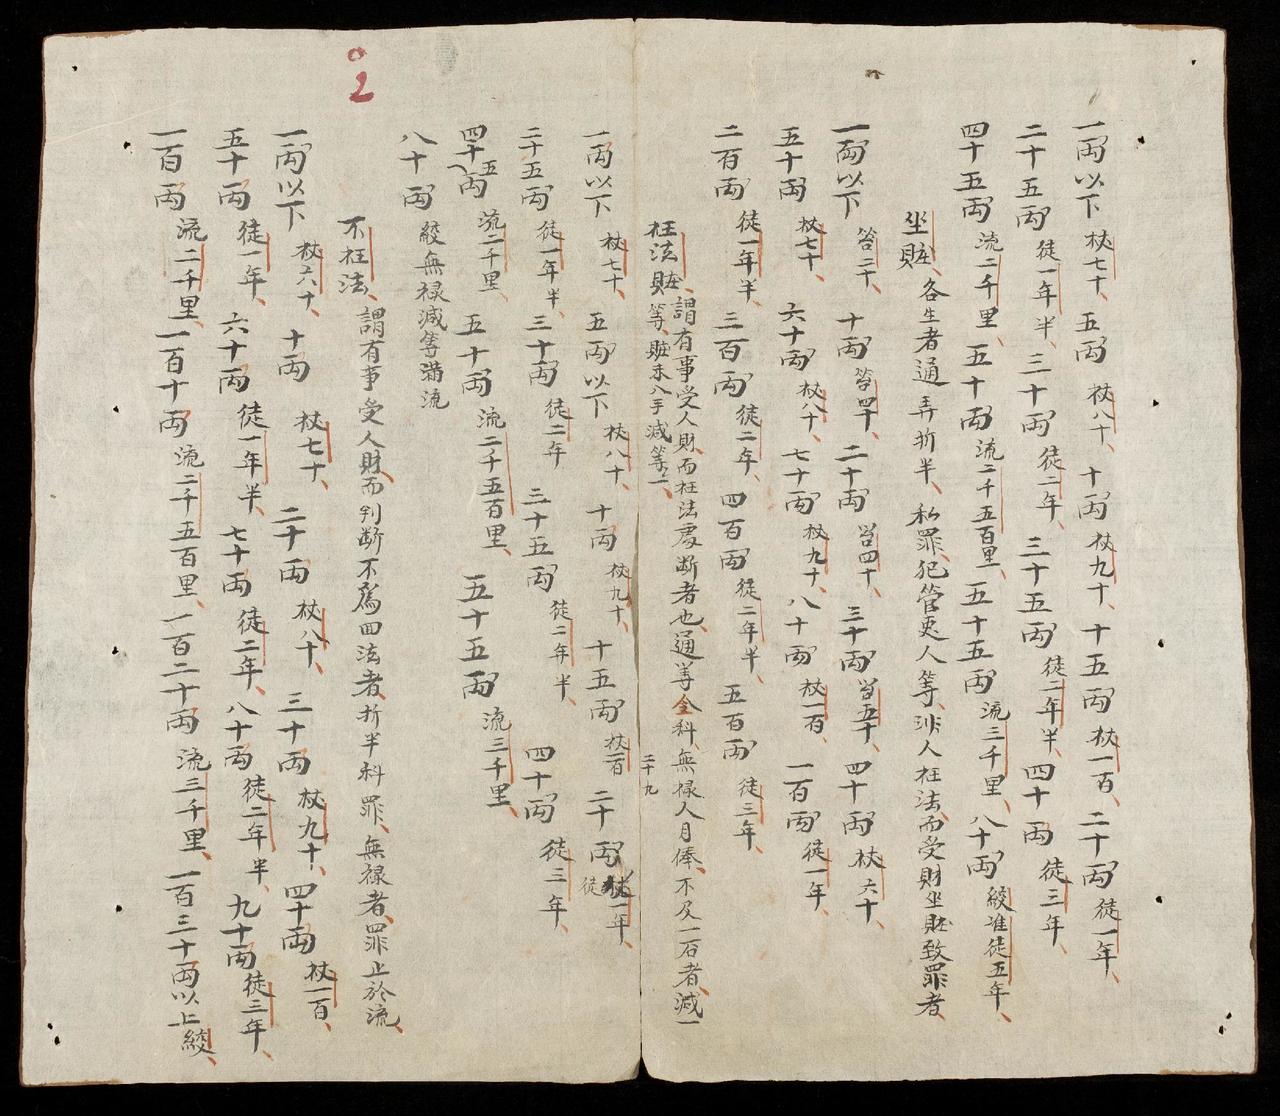 一兩以下杖七十、五兩杖八十、十兩杖九十、十五兩杖一百、二十兩徒一年、
二十五兩徒一年半、三十兩徒二年、三十五兩徒二年半、四十兩徒三年
四十五兩流二千里、五十兩流二千五百里、五十五兩流三千里、八十兩絞准徒五年、
坐賍、各主者通弄折半、私罪、犯管吏人等、非人枉法、而受財坐賍致罪者、
一兩以下笞二十、十兩笞四十、二十兩笞四十、三十兩笞五十、四十兩杖六十、
五十兩杖七十、六十兩杖八十、七十兩杖九十、八十兩杖一百、一百兩徒一年、
二百兩徒一年半、三百兩徒二年、四百兩徒二年半、五百兩徒三年、
枉法賍謂有事受人財、而枉法處斷者也、通筭全科、無祿人月俸、不及一石者、減一
等、賍未入手減等一、
二十九
一兩以下杖七十、五兩以下杖八十、十兩杖九十、十五兩杖一百二十兩徒一年、
二十五兩徒一年半、三十兩徒二年三十五兩徒二年半四十兩徒三年、
四十五兩流二千里五十兩流二千五百里、五十五兩流三千里、
八十兩絞無祿減等滿流
不枉法、謂有事受人財而判斷不爲曲法者、折半科罪、無祿者、罪止於流、
一兩以下杖六十、十兩杖七十、二十兩杖八十、三十兩杖九十、四十兩杖一百、
五十兩徒一年、六十兩徒一年半、七十兩徒二年、八十兩徒二年半、九十兩徒三年、
一百兩流二千里、一百十兩流二千五百里、一百二十兩流三千里、一百三十兩以上絞、
2